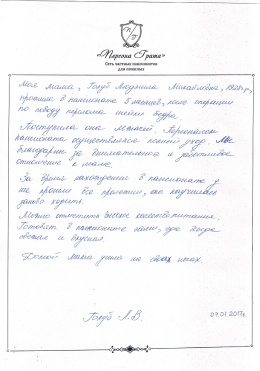 «Персона Грата»
Сеть частных пансионатов
для пожилых
Моя мама, Голуб Людмила Михайловна, 1928 г.р.,
прожила в пансионате 5 месяцев, после операции
по поводу перелома шейки бедра.
Поступила она лежачей. Персоналом
пансионата осуществлялся полный уход. Мы
благодарны за внимательное и заботливое
отношение к маме.
За время нахождения в пансионате у
нее прошли все пролежни, она научилась
заново ходить.
Можно отметить высокое качество питания.
Готовят в пансионате сами, еда всегда
свежая и вкусная.
Домой мама ушла на своих ногах.
Голуб Л.В.
09.01.2017г.